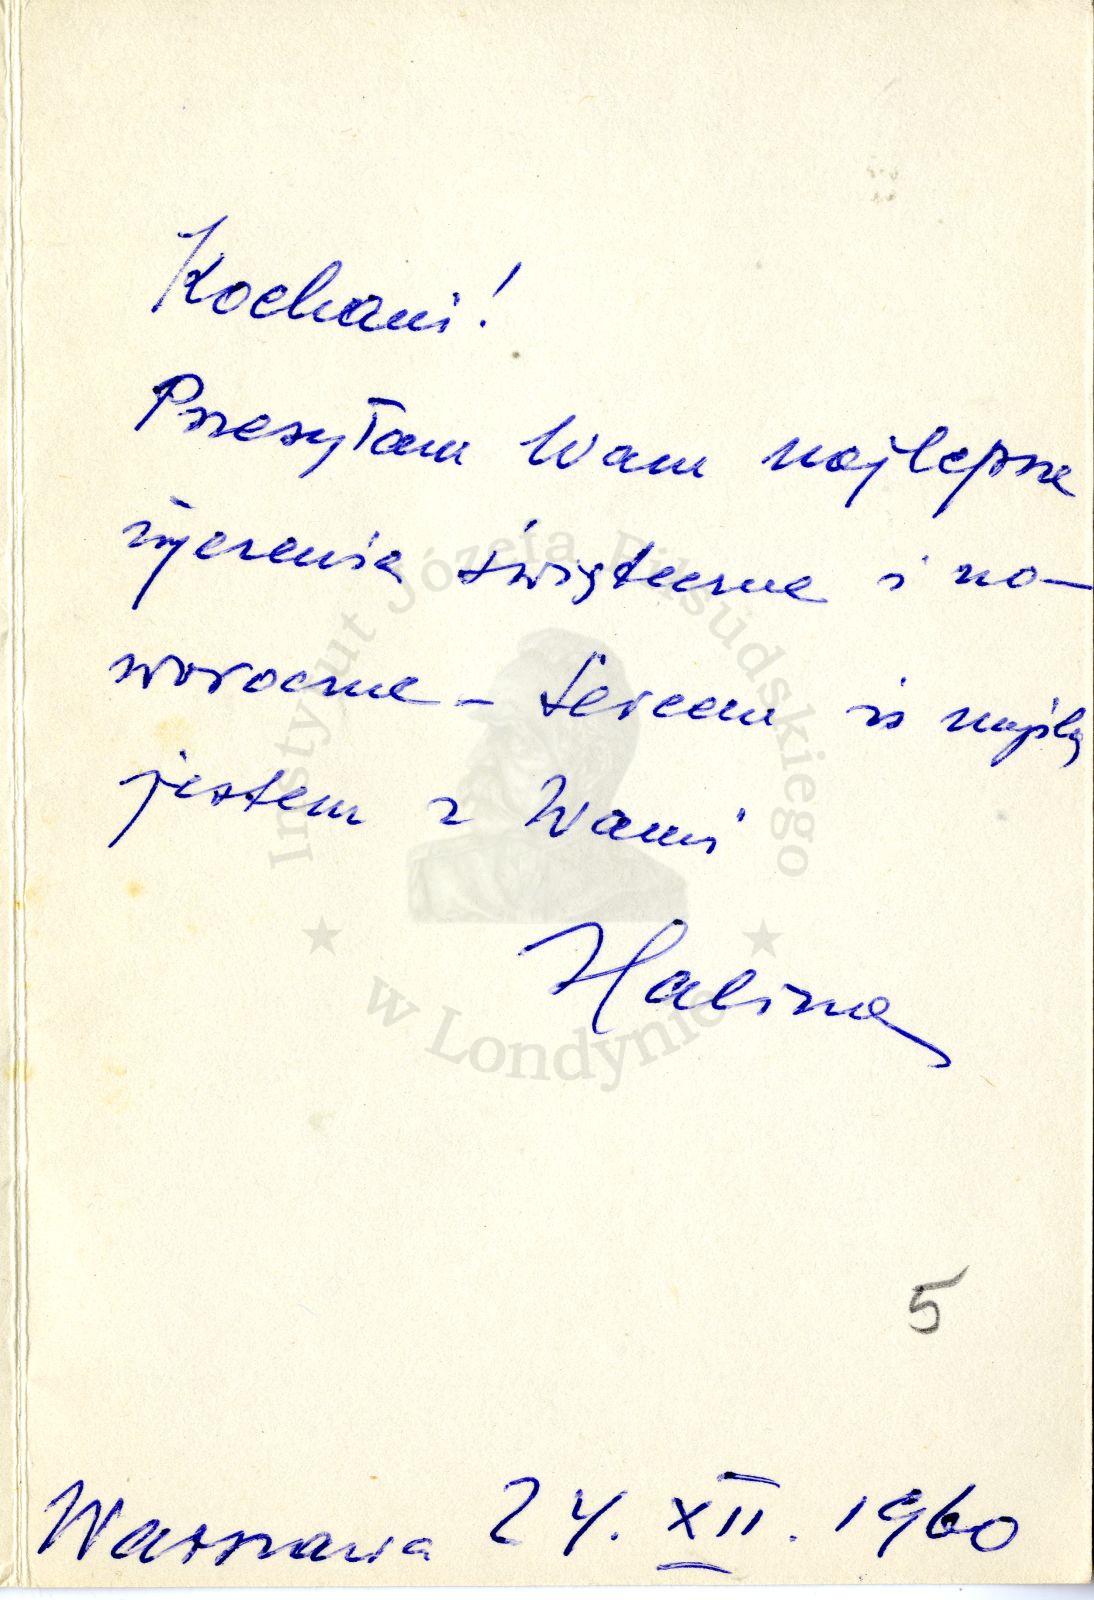 Kochani!
Przesyłam Wam najlepsze
życzenia świąteczne i no-
woroczne - sercem i myślą
jestem z Wami
Halina
5
Warszawa 24. XII. 1960
Instytut Józefa Piłsudskiego
w Londynie